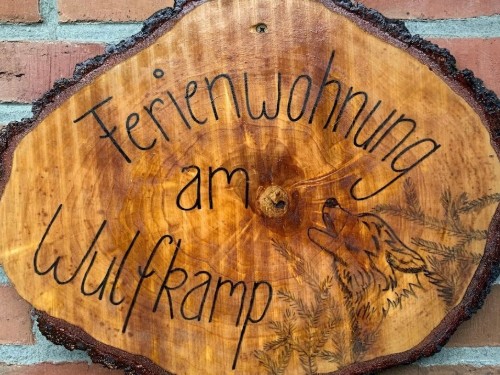 Ferienwohnung
am
Wulfkamp